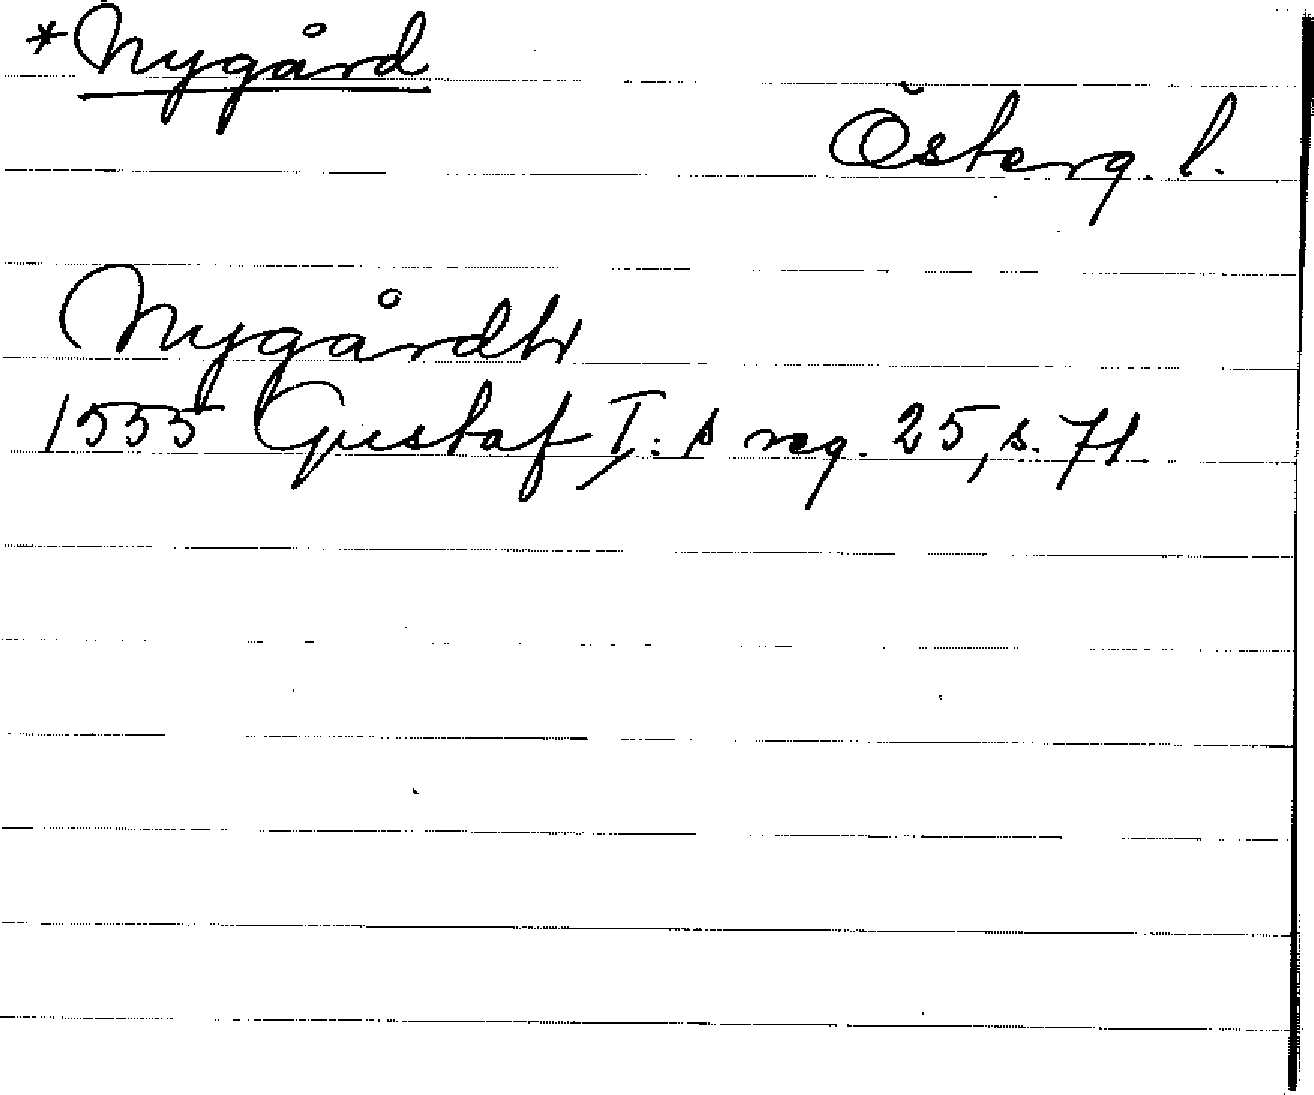 *Nygård
Österg. l.
Nygårdh
1555 Gustaf I:s reg. 25, s. 71